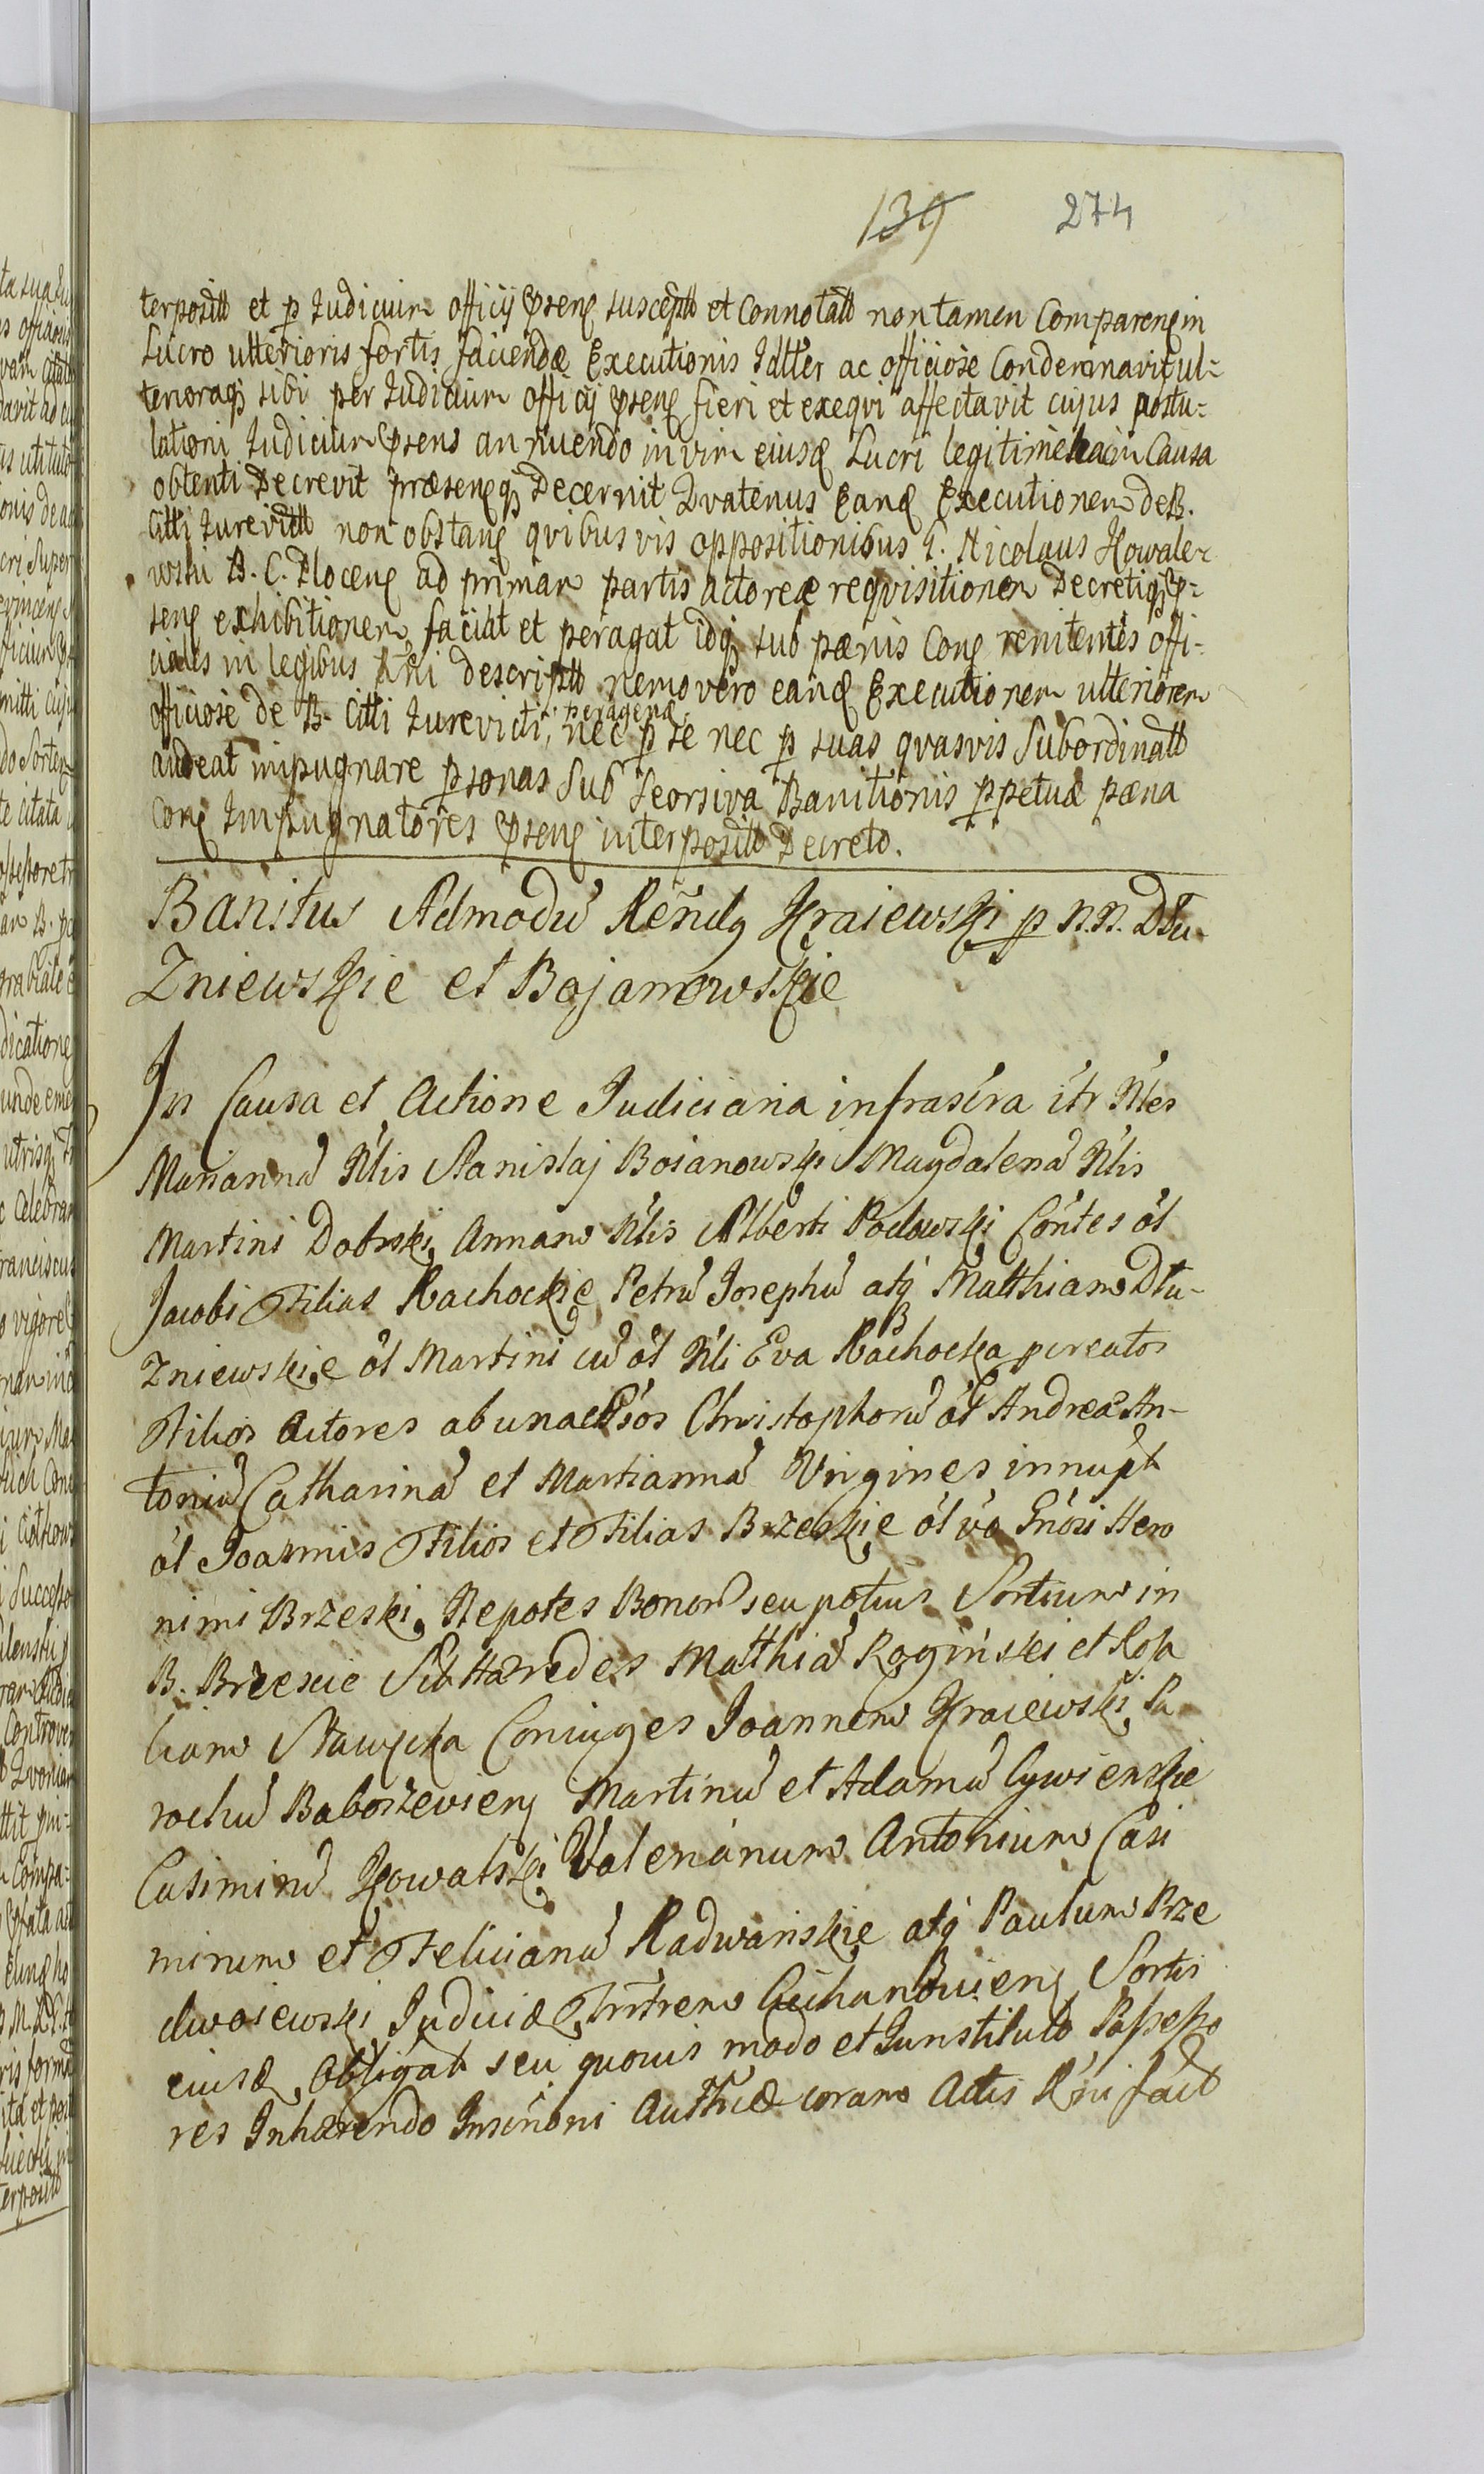 139 274
terposit et p Judicium officij pseng suscept et Connotatt non tamen Compareng in
Lucro ulterioris fortis faciendæ Executionis Jdtter ac officiose Condemnavit ul-
terioraq sibi per Judicium officij pseng fieri et exeqvi affectavit cujus postu-
lationi Judicium psens annuendo in vim eiusd Lucri legitime hac in Causa
obtenti Decrevit præsengq Decernit Qvatenus Eand Executionem de B.
Citti Jurevictt non obstang qvibus vis oppositionibus G. Nicolaus Kowale-
wski B. C. Ploceng ad primam partis actoreæ reqvisitionem Decretiq p-
seng exhibitionem faciat et peragat idq sub pænis Cong renitentes offi-
ciales in legibus Rni descriptt nemo vero eand Executionem ulteriorem
officiose de B. Citti Jurevicti, peragend
nec p se nec p suas qvasvis Subordinatt
audeat impugnare psonas Sub Seorsiva Banitionis ppetuæ pæna
Cong Impugnatores pseng interposito Decreto.
Banitus Admodu Rendg Kraiewski p N.N. Dłu-
Zniewskie et Bojanowskie
In Causa et Actione Judiciaria infrascra itr Nles
Marianna Nlis Stanislaj Boianowski Magdalena Nlis
Martini Dobrski, Annam Nlis Alberti Podowski Contes ol
Jacobi Filias Rachockie Petru Josephu atq Matthiam Dłu-
Zniewskie ol Martini cu ol Nli Eva Rachocka pcreatos
Filios Actores ab una et Gsos Christophoru ol Andrea An-
toniu Catharina et Martianna Virgines innupt
ol Joannis Filios et Filias Brzeskie ol vo Gnosi Hero
nimi Brzeski, Nepotes Bonor seu potius Sortium in
B. Brzescie Sitt Hæredes Matthia Roginski et Rosa
liam Coniuges Joannem Kraiewski Pa
rochu Baboszevieng Martinu et Adamu Cywinskie
Casimiru Kowalski, Valerianum Antonium Casi
mirum et Felicianu Radwanskie atq Paulum Prze
dwoiewski Judiciæ Trrem Ciechanovieng Sortis
eiusd, Obligat seu quovis modo et Junstituto Possesso
res Inhærendo Inscnoni Authcæ coram Actis Rni fact